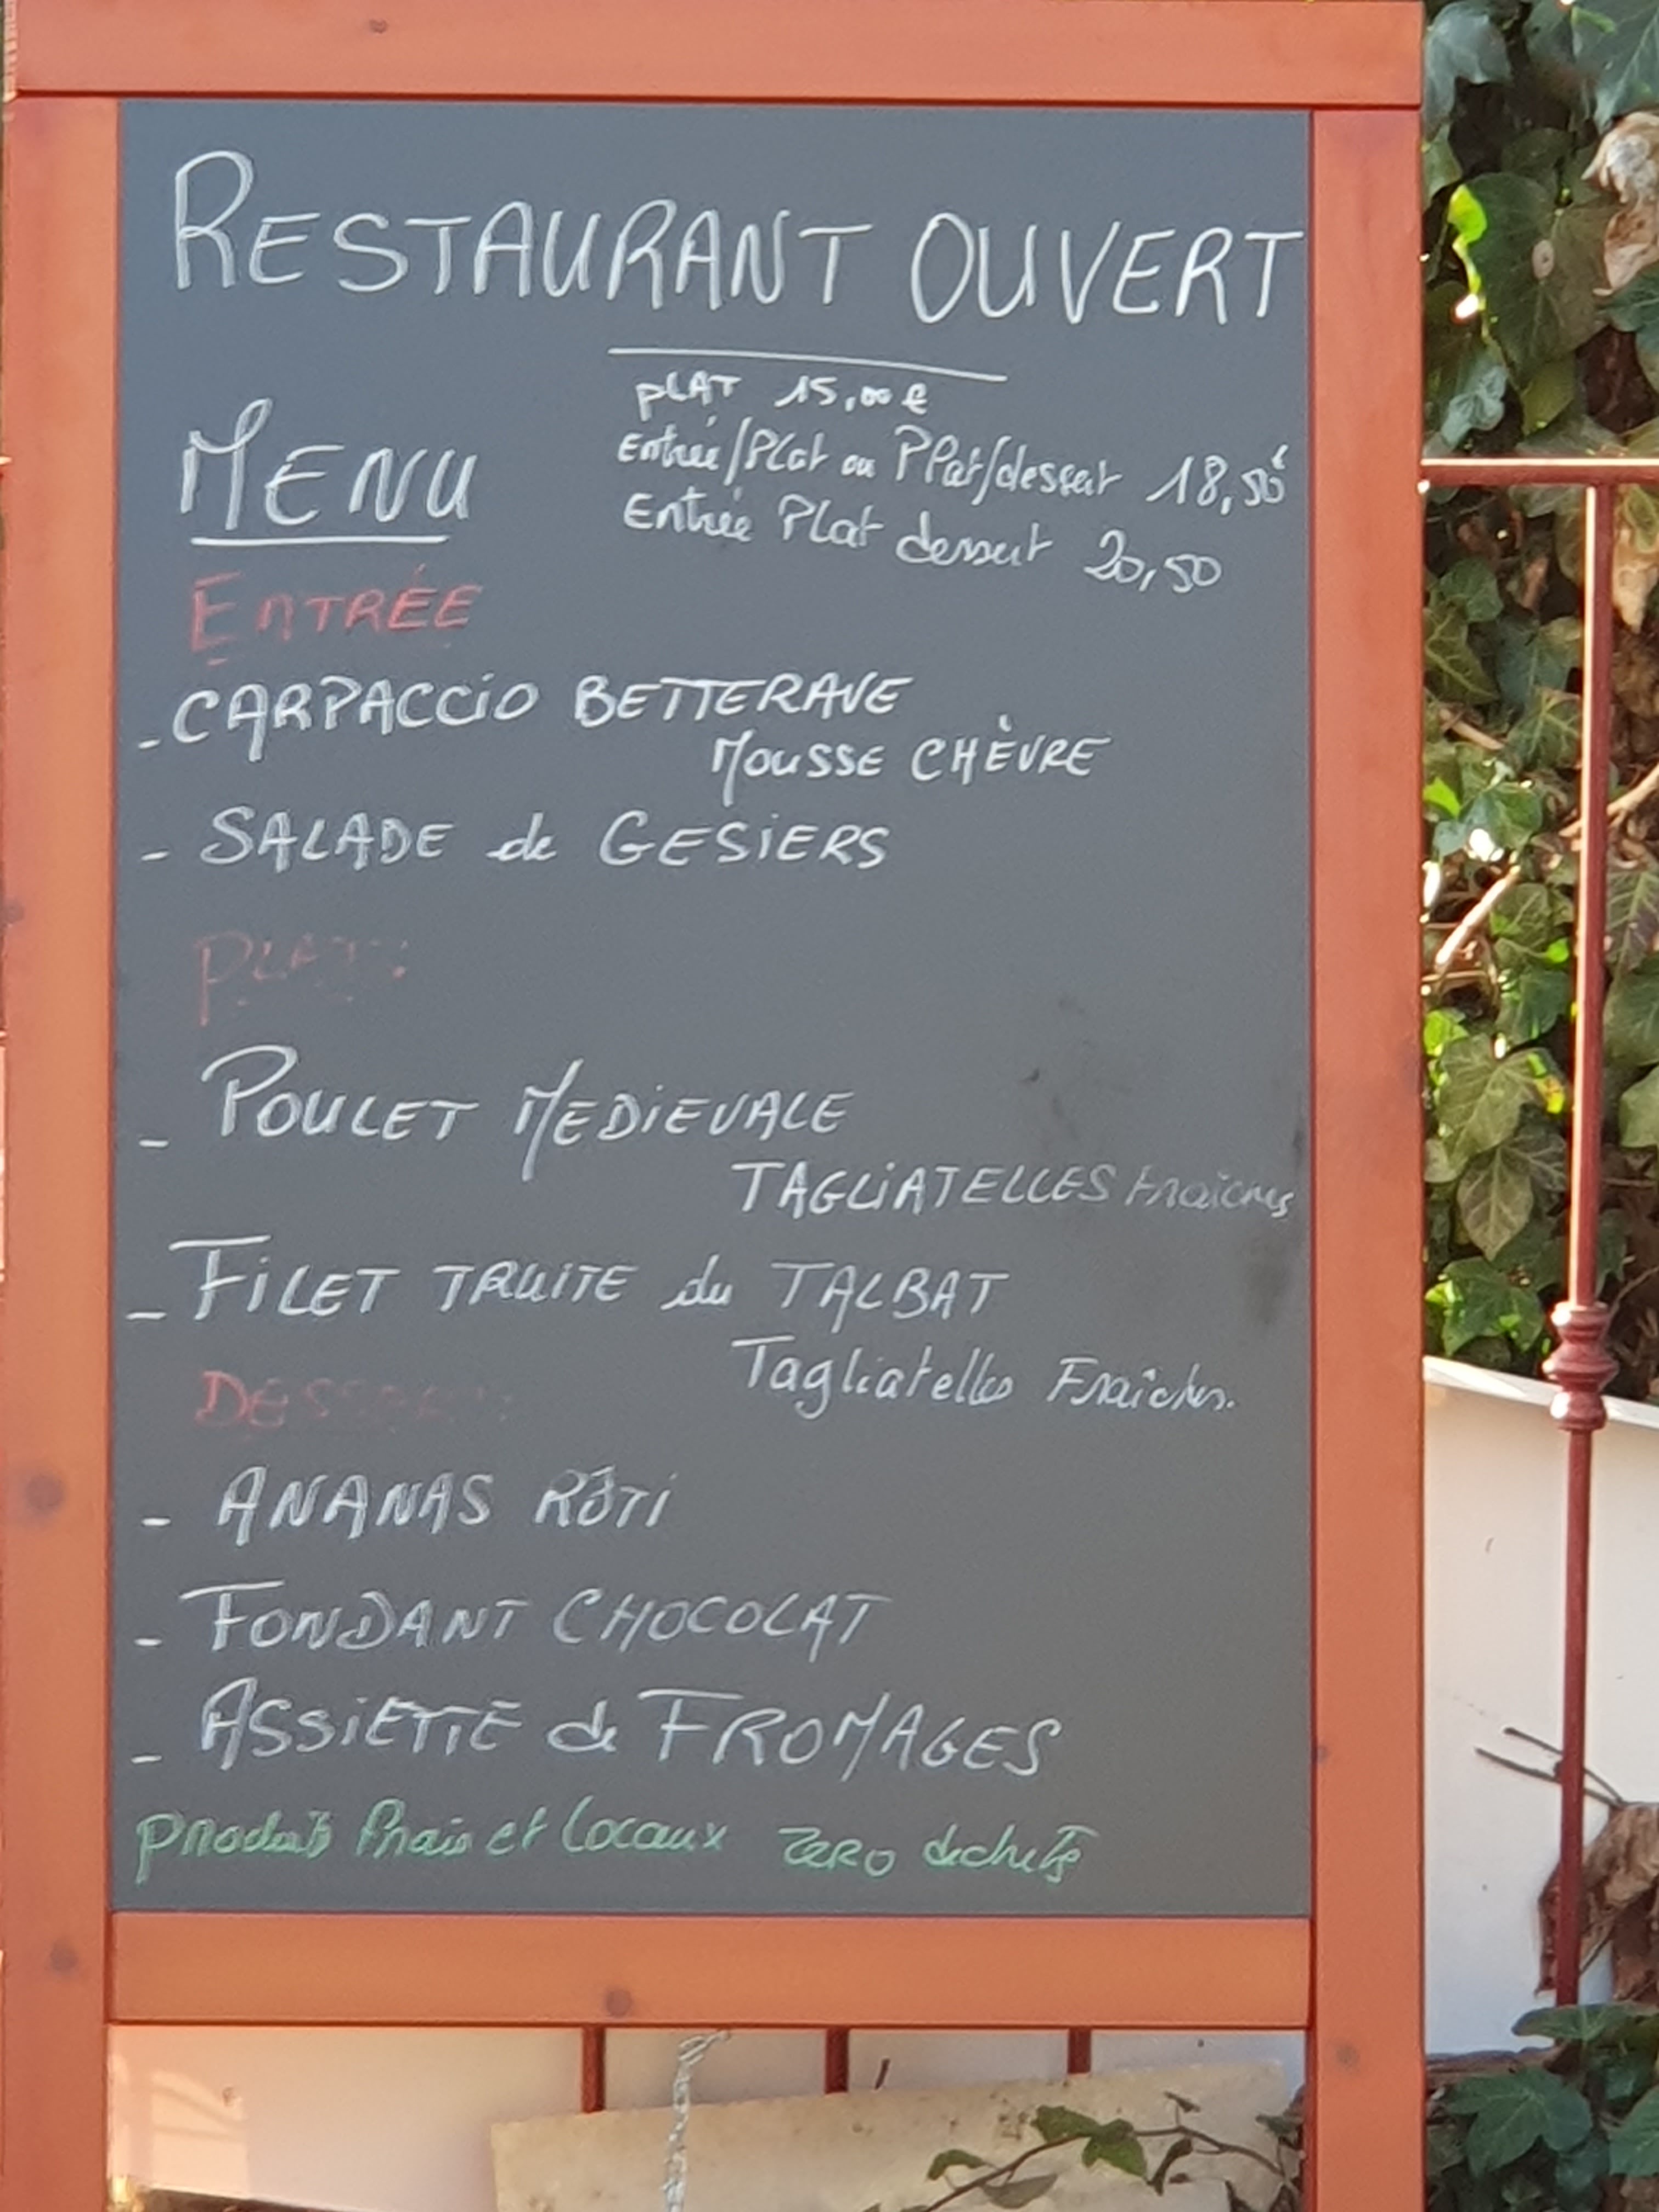 RESTAURANT OUVERT
PLAT 15,00€
MENU
Entrée/Plat ou PPlat/dessert 18,50€
Entrée Plat dessert 20,50
ENTRÉE
- CARPACCIO BETTERAVE
MOUSSE CHÈVRE
- SALADE de GESIERS
PLATS
- POULET MEDIEVALE
TAGLIATELLES Fraîches
- FILET TRUITE du TALBAT
Tagliatelles Fraîches.
DESSERTS
- ANANAS RÔTI
- FONDANT CHOCOLAT
- ASSIETTE de FROMAGES
produits frais et locaux ZERO dechets